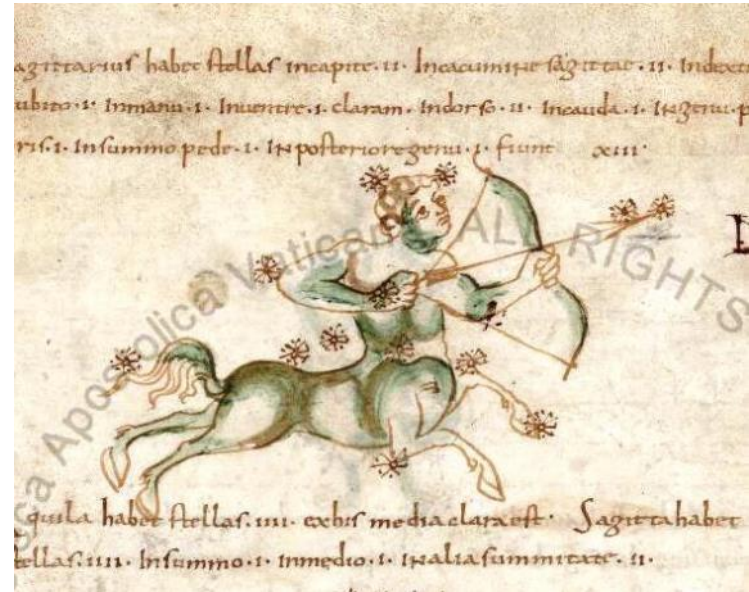 agittarius habet stellas in capite. ii. In cacumine sagittae. ii. In dext
ubito. i. In manu. i. In ventre. i. claram. In dorso. ii. In cauda. i. IN genu. p
ris. i. In summo pede. i. IN posteriore genu. i. fiunt xiii.
Apostolica Vaticana ALL RIGHTS
quila habet stellas. iiii. ex his media clara est. Sagitta habet
tellas. iiii. In summo. i. In medio. i. IN alia summitate. ii.